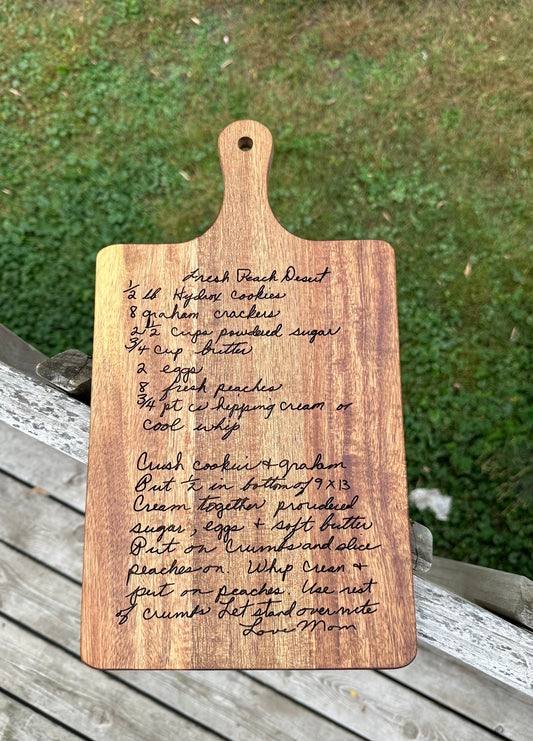 Fresh Peach Desert
1/2 lb Hydrox cookies
8 graham crackers
2 1/2 cups powdered sugar
3/4 cup butter
2 eggs
8 fresh peaches
3/4 pt whipping cream or
cool whip
Crush cookies + graham
Put 1/2 in bottom of 9 x 13
Cream together powdered
sugar, eggs + soft butter
Put on crumbs and slice
peaches on. Whip cream +
put on peaches. Use rest
of crumbs Let stand over nite
Love Mom